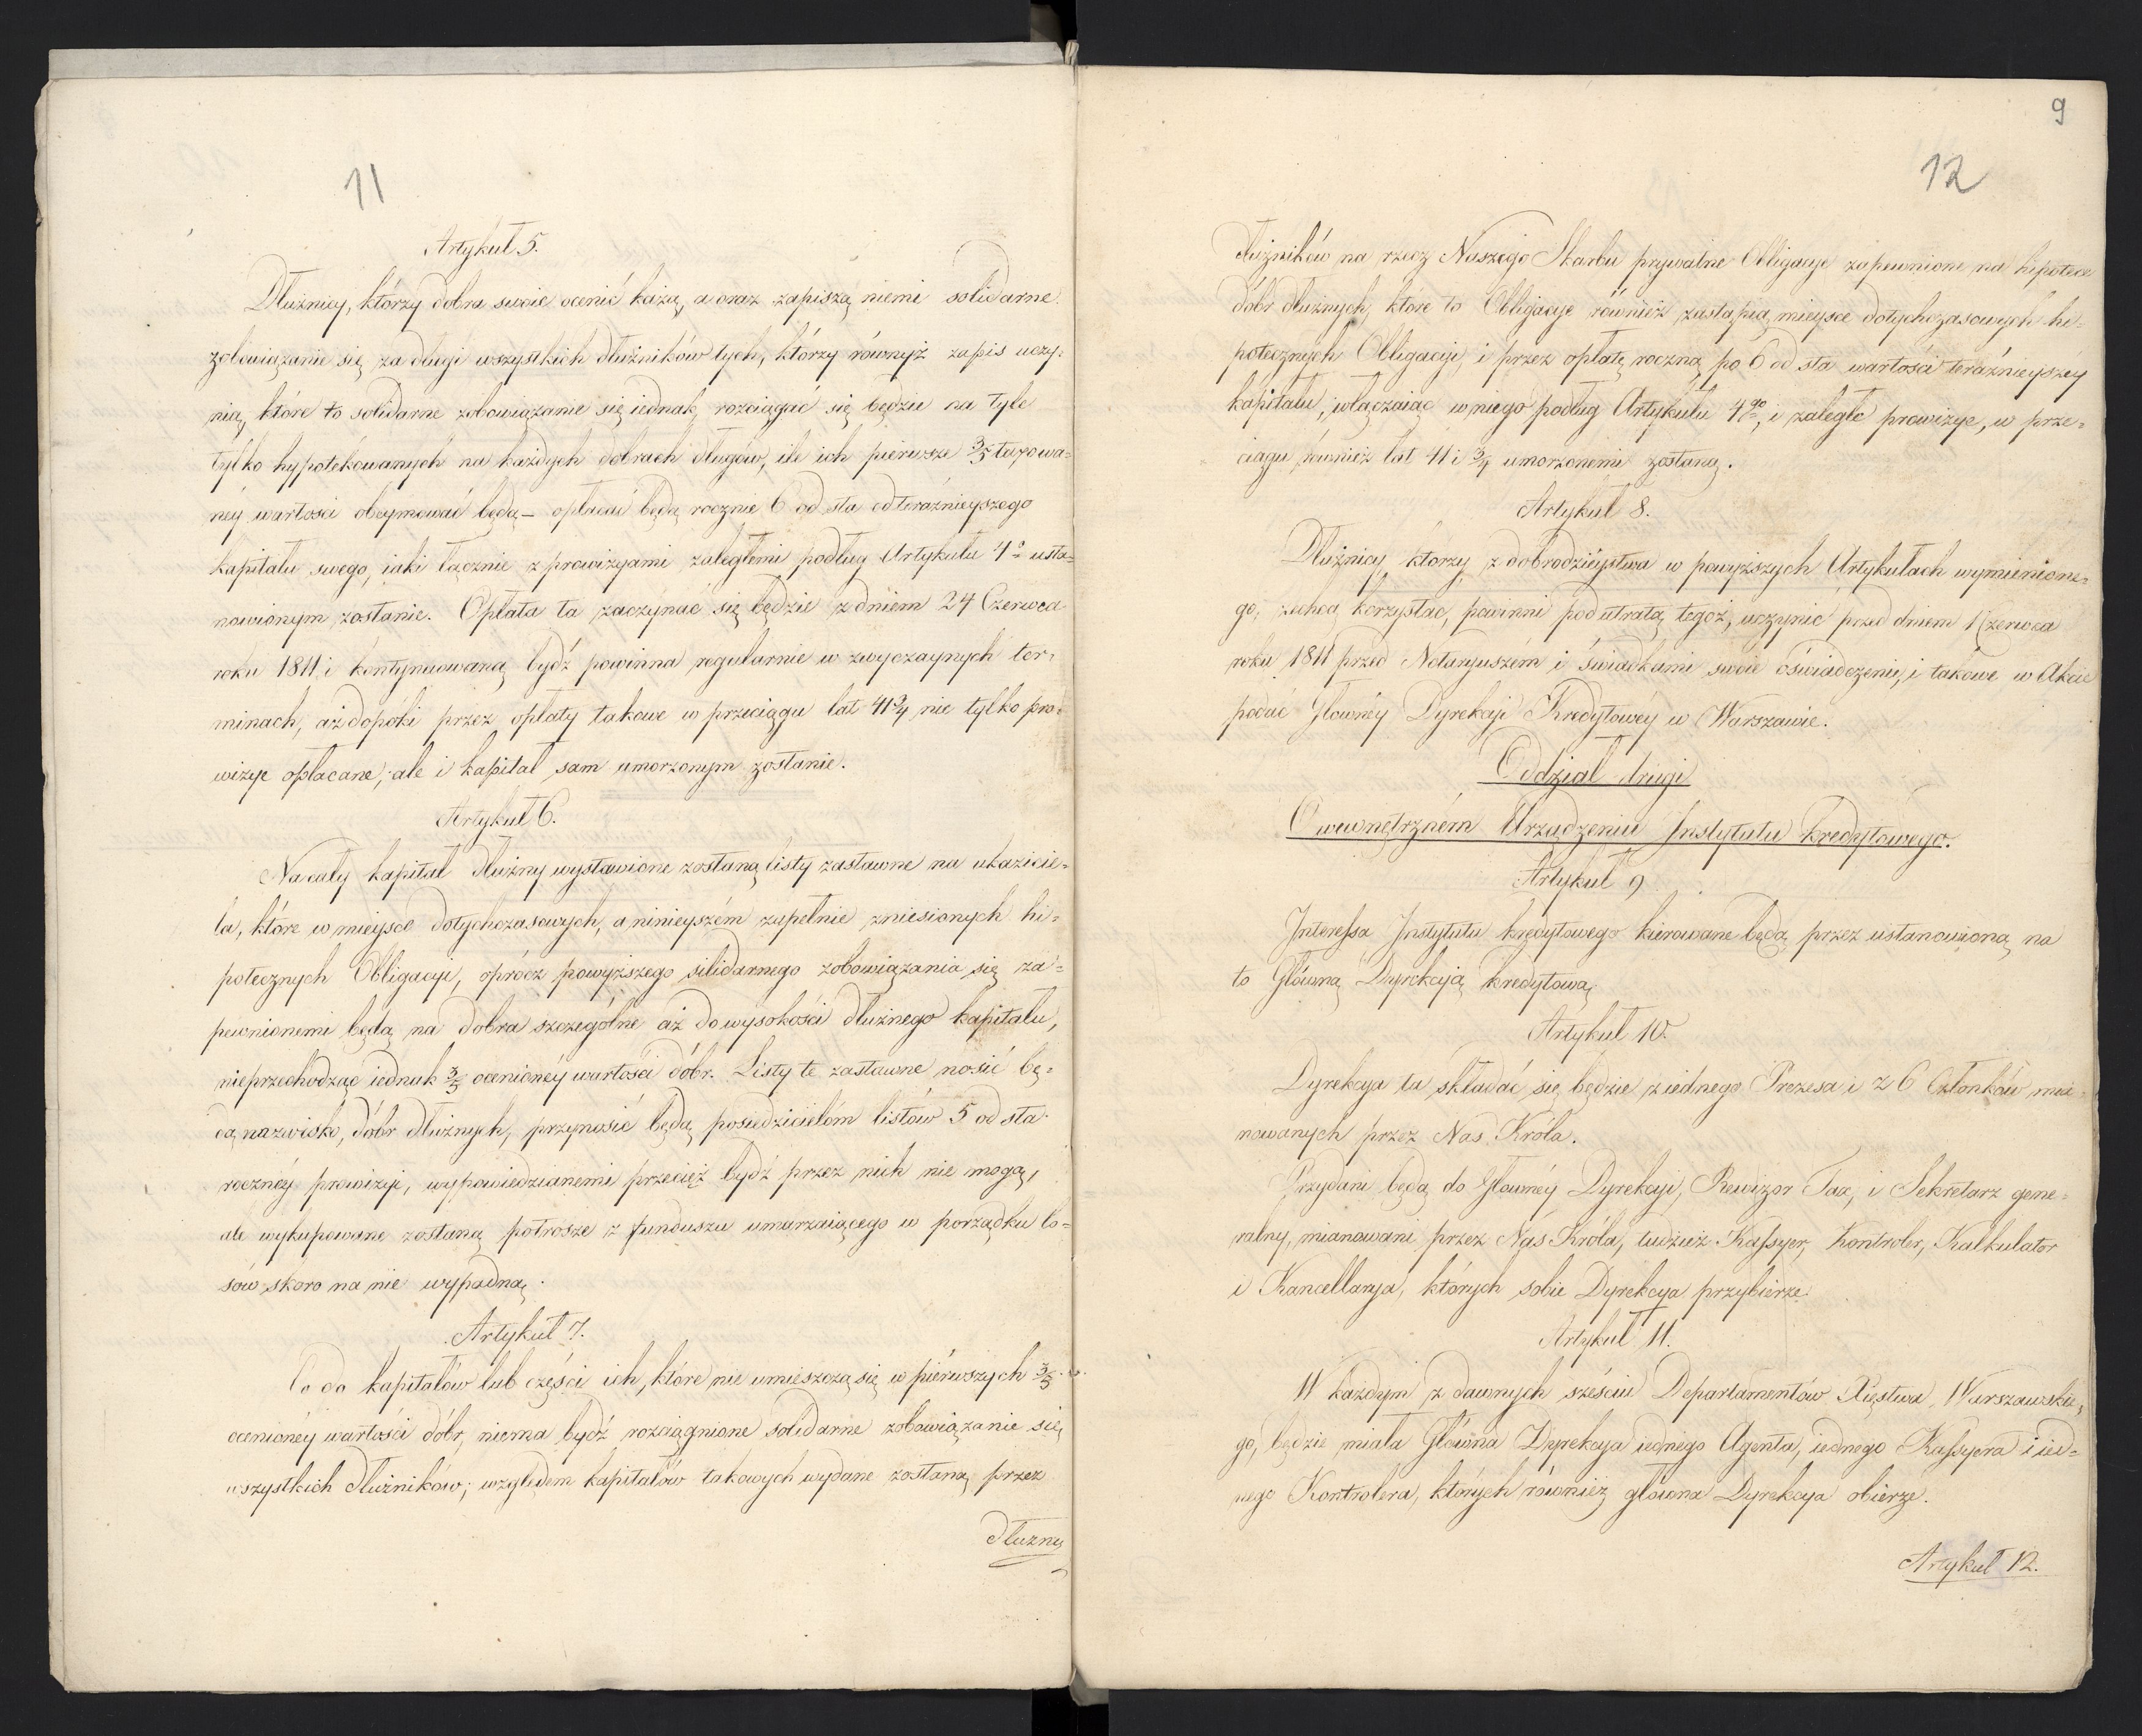 11
Artykuł 5.
Dłużnicy, którzy dobra swoie ocenić każą, a oraz zapiszą niemi solidarne
zobowiązanie się za długi wszystkich dłużników tych, którzy równyż zapis uczy-
nią, które to solidarne zobowiązanie się iednak, rozciągać się będzie na tyle
tylko hypotekowanych na każdych dobrach długów, ile ich pierwsze 3/5 taxowa-
néy wartości obeymować będą – opłacać będą rocznie 6 od sta od teraźnieyszego
kapitału swego, iaki łącznie z prowizyami zaległemi podług Artykułu 4º usta-
nowionym zostanie. Opłata ta zaczynać się będzie z dniem 24 Czerwca
roku 1811 i kontynuowaną bydź powinna regularnie w zwyczaynych ter-
minach, aż dopóki przez opłaty takowe w przeciągu lat 41 3/4 nie tylko pro-
wizye opłacane, ale i kapitał sam umorzonym zostanie.
Artykuł 6.
Na cały kapitał dłużny wystawione zostaną listy zastawne na ukazicie-
la, które w mieysce dotychczasowych, a ninieyszém zupełnie zniesionych hi-
potecznych Obligacyi, oprócz powyższego silidarnego zobowiązania się za-
pewnionemi będą na dobra szczególne aż do wysokości dłużnego kapitału,
nieprzechodząc iednak 3/5 ocenionéy wartości dóbr. Listy te zastawne nosić bę-
dą nazwisko, dóbr dłużnych, przynosić będą posiedzicielom listów 5 od sta
rocznéy prowizyi, wypowiedzianemi przecięż bydź przez nich nie mogą,
ale wykupowane zostaną potrosze z funduszu umarzaiącego w porządku lo-
sów skoro na nie wypadną.
Artykuł 7.
Co do kapitałów lub części ich, które nie umieszczą się w piérwszych 3/5
ocenionéy wartości dóbr, niema bydź rozciągnione solidarne zobowiązanie się
wszystkich dłużników; względem kapitałów takowych wydane zostaną przez
Dłużny
9
12
dłużników na rzecz Naszego Skarbu prywatne Obligacye zapewnione na hipotece
dóbr dłużnych, które to Obligacye również zastąpią mieysce dotychczasowych hi-
potecznych Obligacyi, i przez opłatę roczną po 6 od sta wartości teraźnieyszéy
kapitału, włączaiąc w niego podług Artykułu 4go, i zaległe prowizye, w prze-
ciągu również lat 41 i 3/4 umorzonemi zostaną.
Artykuł 8.
Dłużnicy, którzy z dobrodzieystwa w powyższych Artykułach wymienione-
go, zechcą korzystać, powinni pod utratą tegoż, uczynić przed dniem 1 Czerwca
roku 1811 przed Notaryuszém i świadkami swoie oświadczenie, i takowe w Akcie
podać Głównéy Dyrekcyi Kredytowéy w Warszawie.
Oddział drugi
O wewnętrzném Urządzeniu Instytutu kredytowego.
Artykuł 9
Interessa Instytutu kredytowego kierowane będą przez ustanowioną na
to Główną Dyrekcyą kredytową.
Artykuł 10.
Dyrekcya ta składać się będzie z iednego Prezesa i z 6 Członków mia-
nowanych przez Nas Króla.
Przydani będą do Głównéy Dyrekcyi, Rewizor Tax, i Sekretarz gene-
ralny, mianowani przez Nas Króla, tudzież Kassyer, Kontroler, Kalkulator
i Kancellarya, których sobie Dyrekcya przybierze.
Artykuł 11.
W każdym z dawnych sześciu Departamentów Xięstwa Warszawskie-
go, będzie miała Główna Dyrekcya iednego Agenta, iednego Kassyera i ied-
nego Kontrolera, których również główna Dyrekcya obierze.
Artykuł 12.